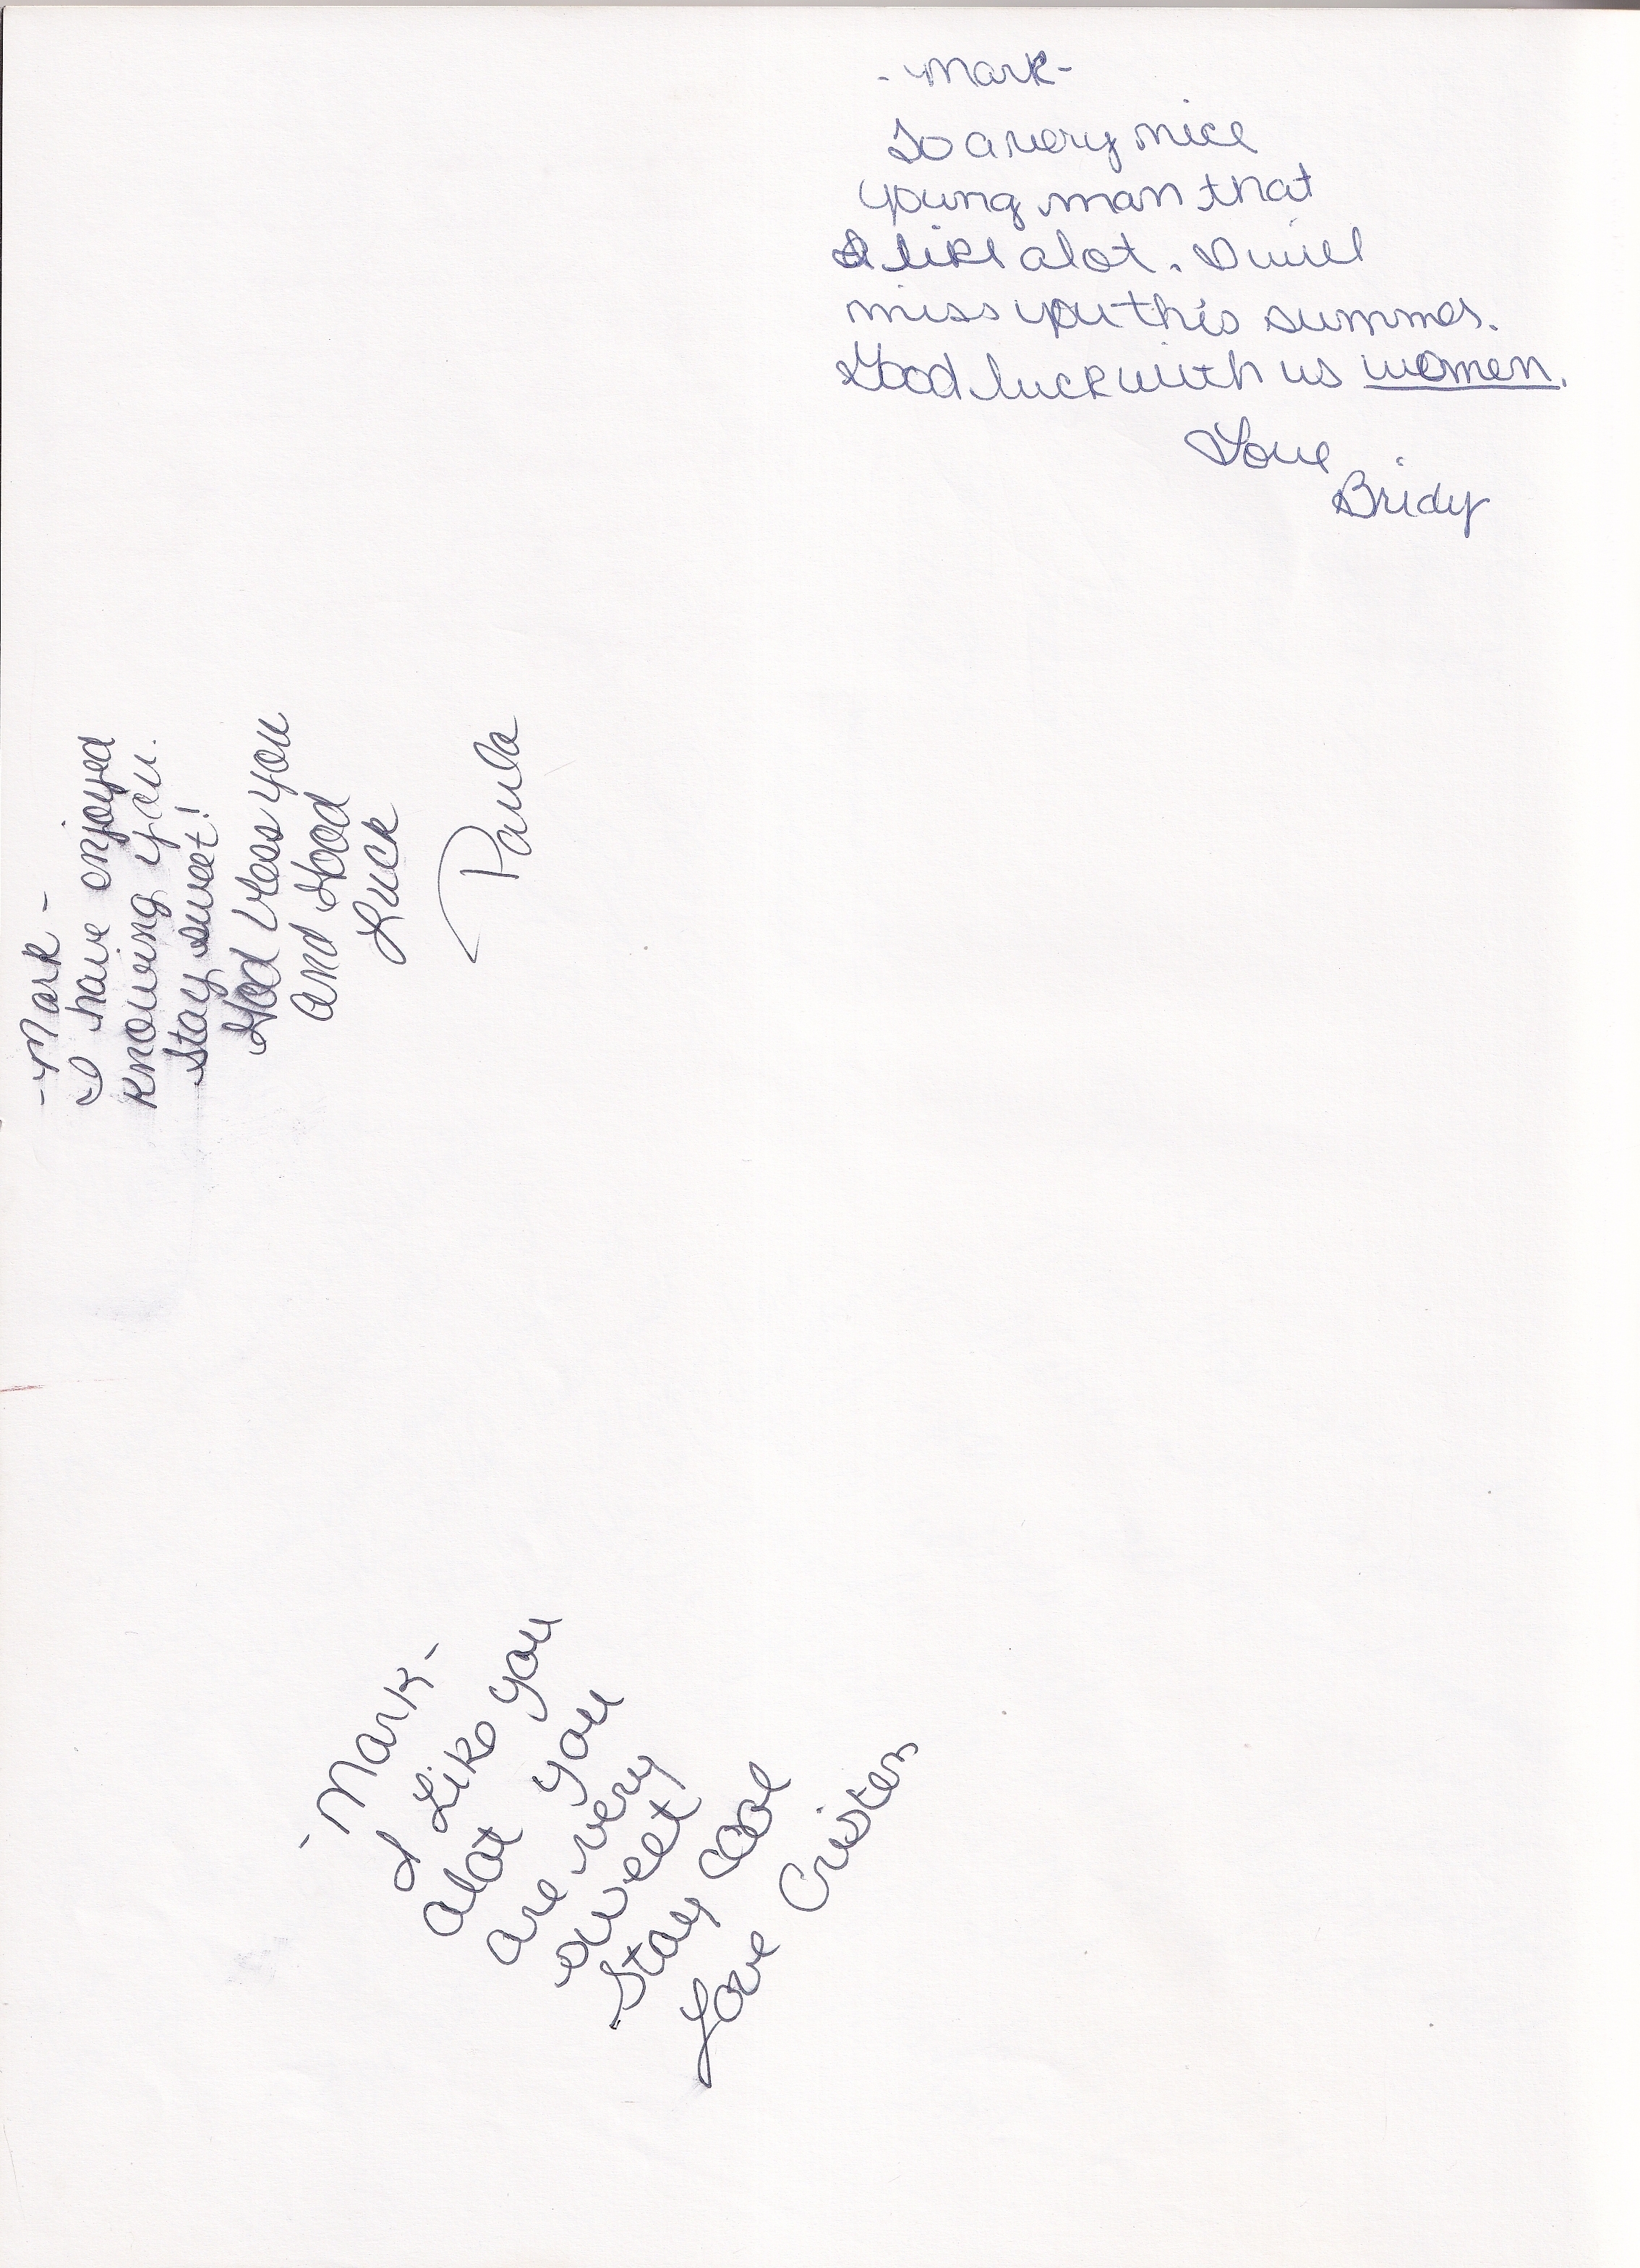 -Mark-
To a very nice
young man that
I like alot. I will
miss you this summer.
Good luck with us women.
Love
Bridy
-Mark-
I have enjoyed
knowing you.
Stay sweet!
God bless you
and Good
Luck
Paula
-Mark-
I Like you
alot you
are very
sweet
Stay cool
Love Cristen